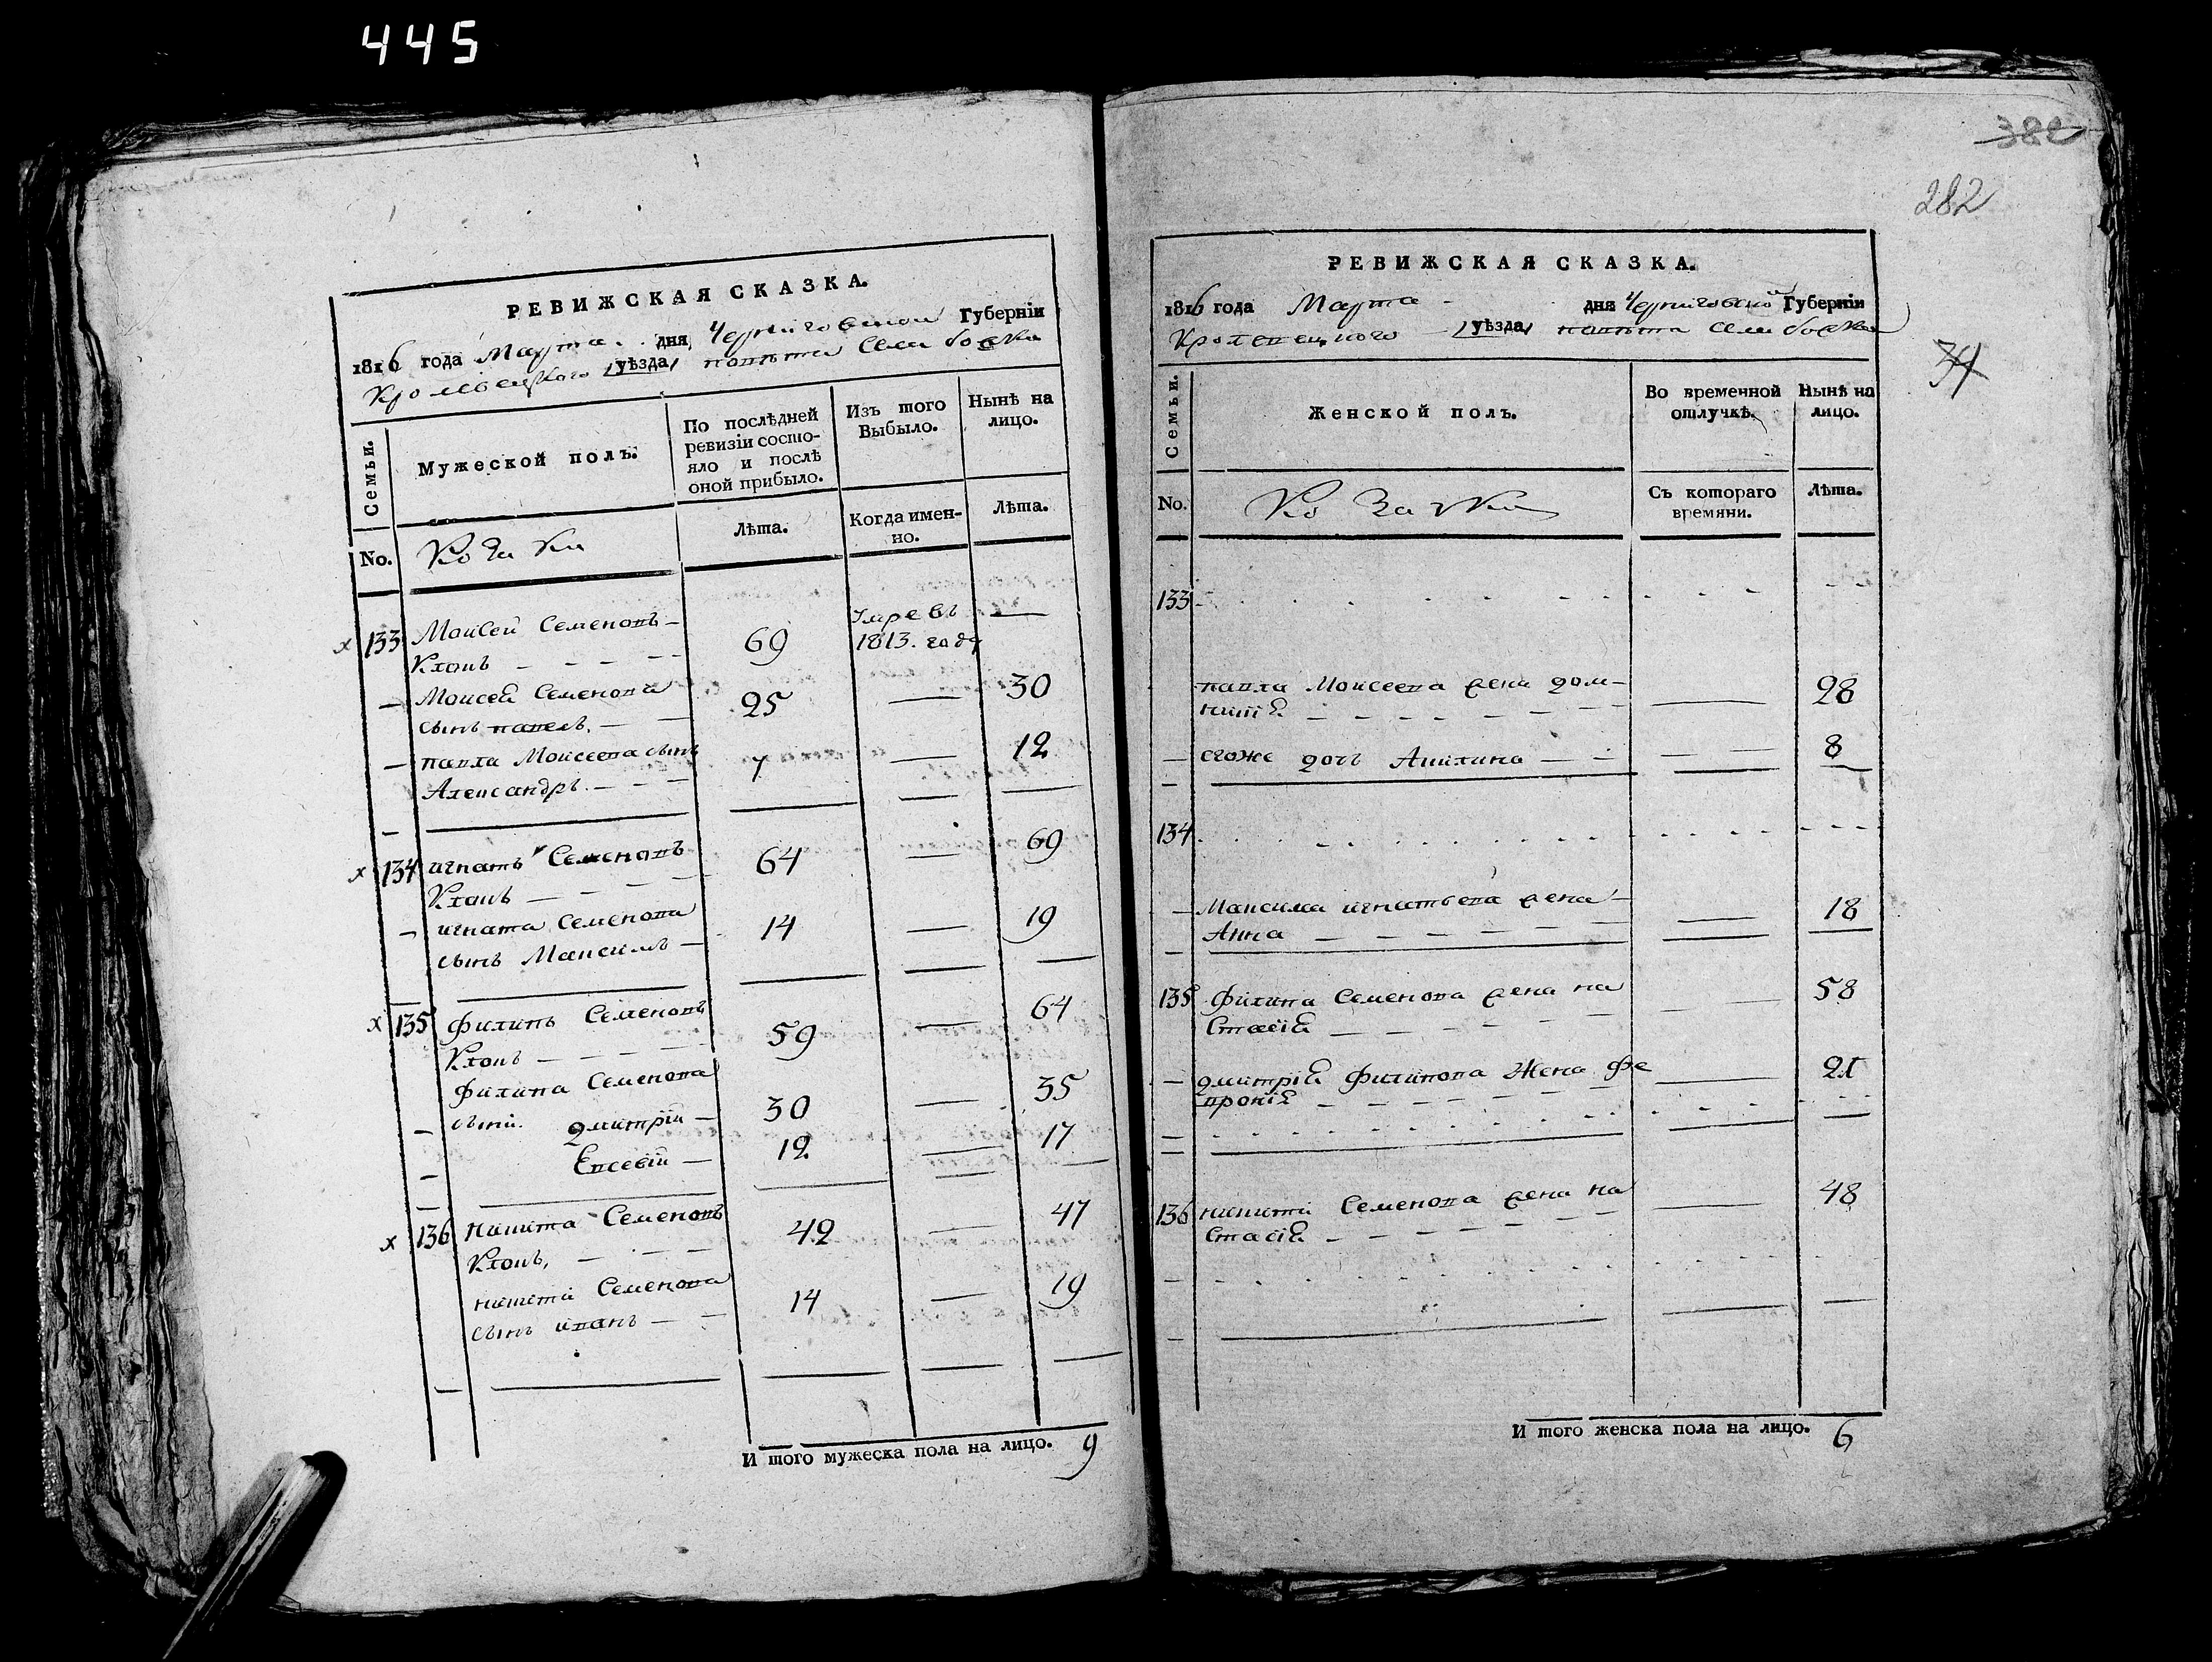 445
РЕВИЖСКАЯ СКАЗКА.
1816 года Марта дня Черниговской Губерніи
Кролевецкого уѣзда повѣта Села
Семьи.
Мужеской полъ.
По послѣдней ревизіи состояло и послѣ оной прибыло.
Изъ того Выбыло.
Нынѣ на лицо.
No.
Козаки
Лѣта.
Когда именно.
Лѣта.
х 133 Моисей Семеновъ — 69 Умре въ —
Клонъ — 1813. году
— Моисея Семенова 25 — 30
сынъ павелъ. —
— павла Моисеева сынъ 7 — 12
Александръ. —
х 134 игнатъ Семеновъ 64 — 69
Клонъ —
— игната Семенова 14 — 19
сынъ Максимъ —
х 135 филипъ Семеновъ 59 — 64
Клонъ —
филипа Семенова
— сыни. дмитрій — 30 — 35
— Евсевій — 12 — 17
х 136 никита Семеновъ 42 — 47
Клонъ, —
никити Семенова 14 — 19
сынъ иванъ —
И того мужеска пола на лицо. 9
382
282
РЕВИЖСКАЯ СКАЗКА.
1816 года Марта дня Черниговской Губерніи
Кролевецкого уѣзда повѣта Села
Семьи.
Женской полъ.
Во временной отлучкѣ.
Нынѣ на лицо.
No.
Козачки
Съ котораго времяни.
Лѣта.
133
павла Моисеева жена дом- — 28
никія —
— егоже дочь Акилина — 8
134
— Максима игнатьева жена — 18
Анна —
135 филипа Семенова жена на — 58
стасія —
— дмитрія филипова Жена фе — 21
вронія —
136 никити Семенова жена на — 48
стасія —
И того женска пола на лицо. 6